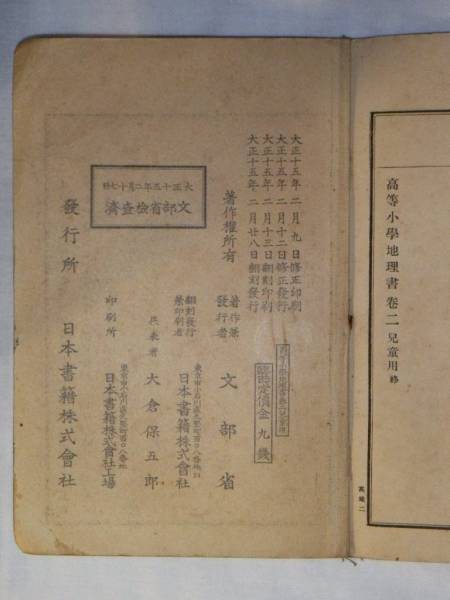 高等小學地理書 卷二 兒童用 終
高地二
大正十五年 二月 九日修正印刷
大正十五年 二月十二日修正發行
大正十五年 二月十三日翻刻印刷
大正十五年 二月廿八日翻刻發行
臨時定價金 九錢
著作權所有
著作兼發行者 文部省
翻刻發行兼印刷者
日本書籍株式會社
代表者 大倉保五郎
印刷所
日本書籍株式會社工場
大正十五年二月十七日
文部省檢查濟
發行所 日本書籍株式會社